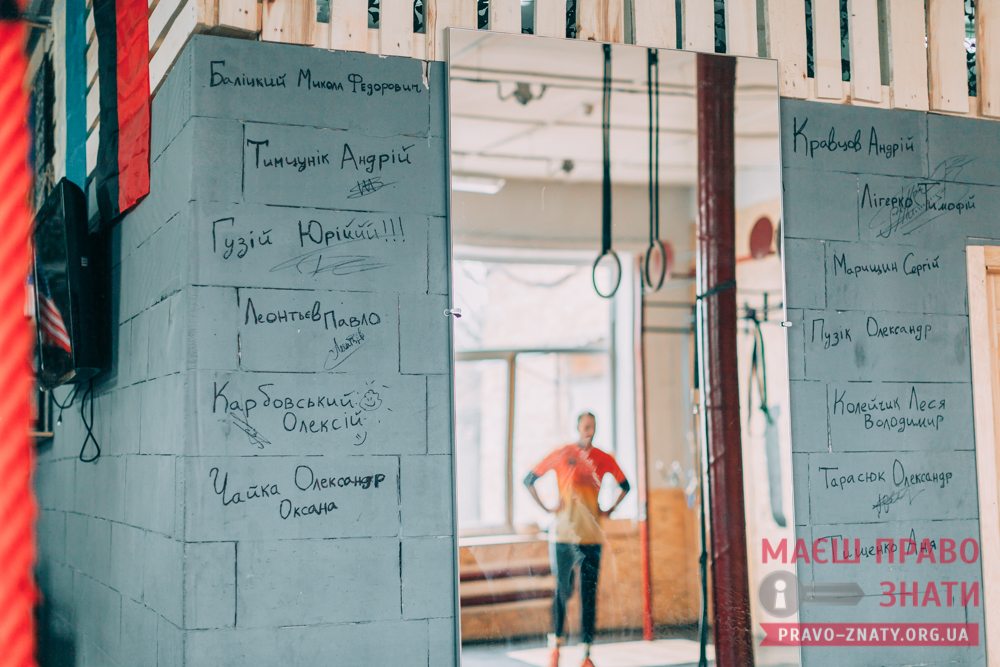 Баліцкий Микола Федорович
Тимцунік Андрій
Гузій Юріййй!!!
Леонтьєв Павло
Карбовський
Олексій
Чайка Олександр
Оксана
Кравцов Андрій
Лігерко Тимофій
Марищин Сергій
Пузік Олександр
Колейчик Леся
Володимир
Тарасюк Олександр
Тищенко Аня
МАЄШ ПРАВО
ЗНАТИ
PRAVO-ZNATY.ORG.UA